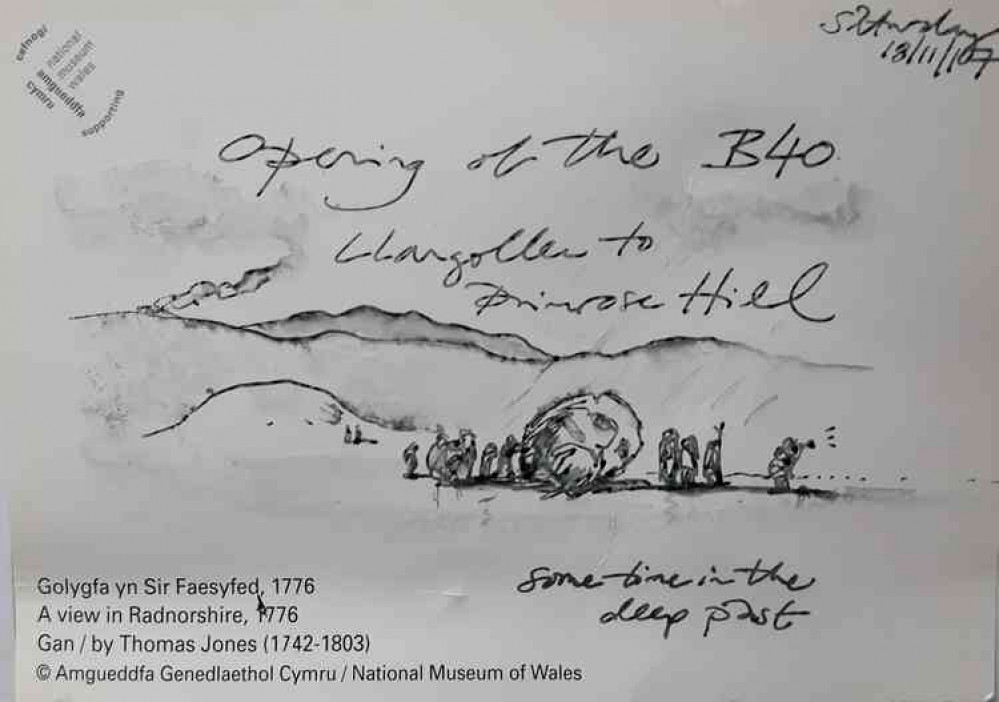 cefnogi
national
museum
wales
amgueddfa
cymru
supporting
Saturday
18/11/107
Opening of the B40
Llangollen to
Primrose Hill
some time in the
deep past
Golygfa yn Sir Faesyfed, 1776
A view in Radnorshire, 1776
Gan / by Thomas Jones (1742-1803)
© Amgueddfa Genedlaethol Cymru / National Museum of Wales